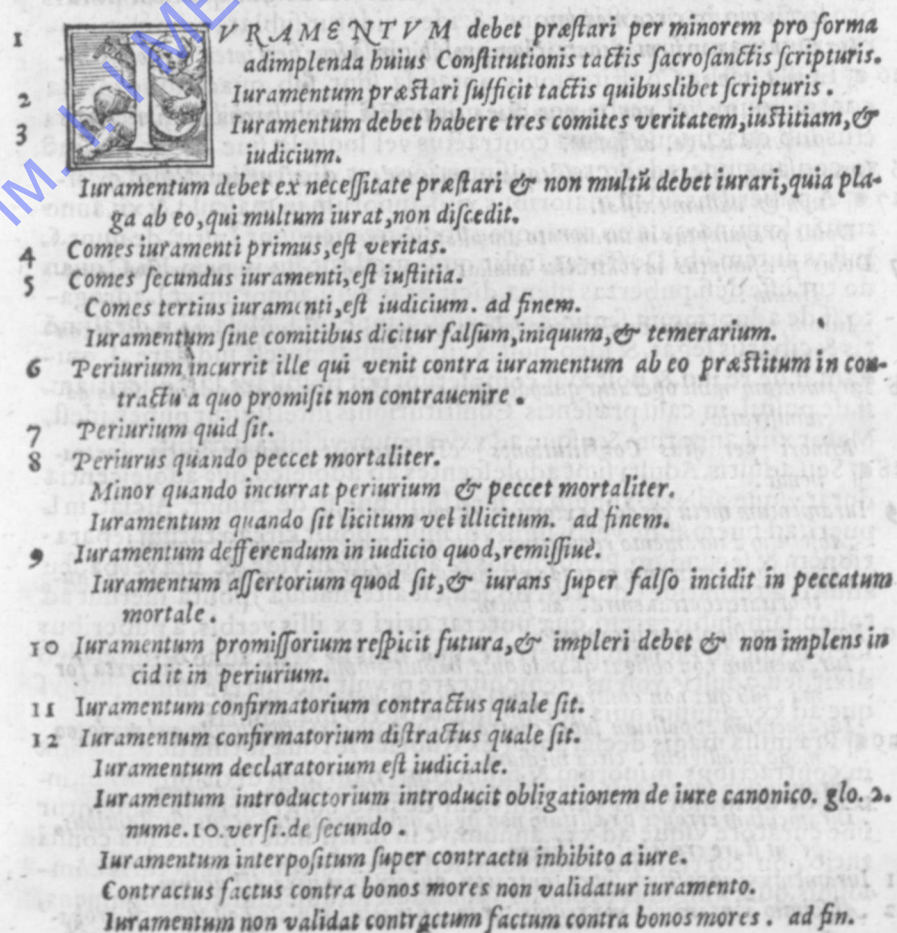 1 IVRAMENTVM debet præstari per minorem pro forma
adimplenda huius Constitutionis tactis sacrosanctis scripturis.
2 Iuramentum præstari sufficit tactis quibuslibet scripturis.
3 Iuramentum debet habere tres comites veritatem, iustitiam, &
iudicium.
Iuramentum debet ex necessitate præstari & non multū debet iurari, quia pla-
ga ab eo, qui multum iurat, non discedit.
4 Comes iuramenti primus, est veritas.
5 Comes secundus iuramenti, est iustitia.
Comes tertius iuramenti, est iudicium. ad finem.
Iuramentum sine comitibus dicitur falsum, iniquum, & temerarium.
6 Periurium incurrit ille qui venit contra iuramentum ab eo præstitum in con-
tractu a quo promisit non contrauenire.
7 Periurium quid sit.
8 Periurus quando peccet mortaliter.
Minor quando incurrat periurium & peccet mortaliter.
Iuramentum quando sit licitum vel illicitum. ad finem.
9 Iuramentum defferendum in iudicio quod, remissiuè.
Iuramentum assertorium quod sit, & iurans super falso incidit in peccatum
mortale.
10 Iuramentum promissorium respicit futura, & impleri debet & non implens in
cid it in periurium.
11 Iuramentum confirmatorium contractus quale sit.
12 Iuramentum confirmatorium distractus quale sit.
Iuramentum declaratorium est iudiciale.
Iuramentum introductorium introducit obligationem de iure canonico. glo. 2.
nume. 10. versi. de secundo.
Iuramentum interpositum super contractu inhibito a iure.
Contractus factus contra bonos mores non validatur iuramento.
Iuramentum non validat contractum factum contra bonos mores. ad fin.